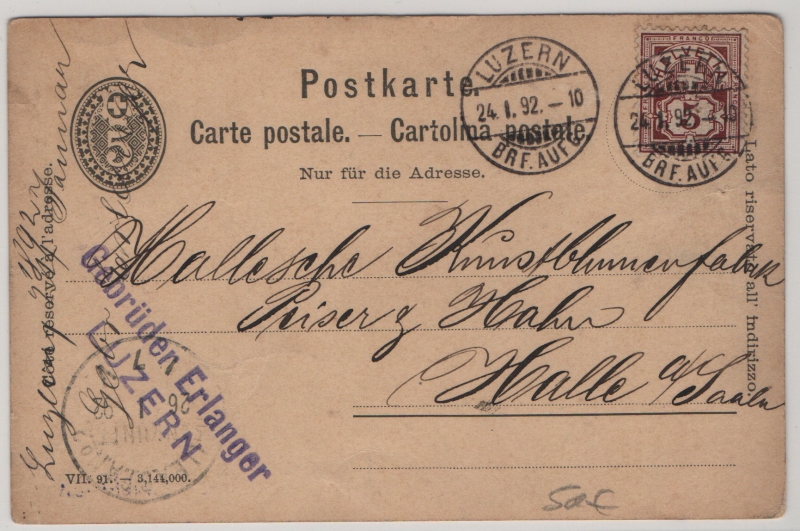 Postkarte.
Carte postale. — Cartolina postale.
Nur für die Adresse.
5
LUZERN
24.I.92.–10
BRF.AUFG.
FRANCO
HELVETIA
5
LUZERN
24.I.92.–10
BRF.AUFG.
Côté réservé à l'adresse.
Lato riservato all' indirizzo.
Hallesche Kunstblumenfabrik
Peiser & Hahn
Halle a/Saale
Luzern
Januar
Gebrüder
Gebrüden Erlanger
LUZERN
VII. 91. — 3,144,000.